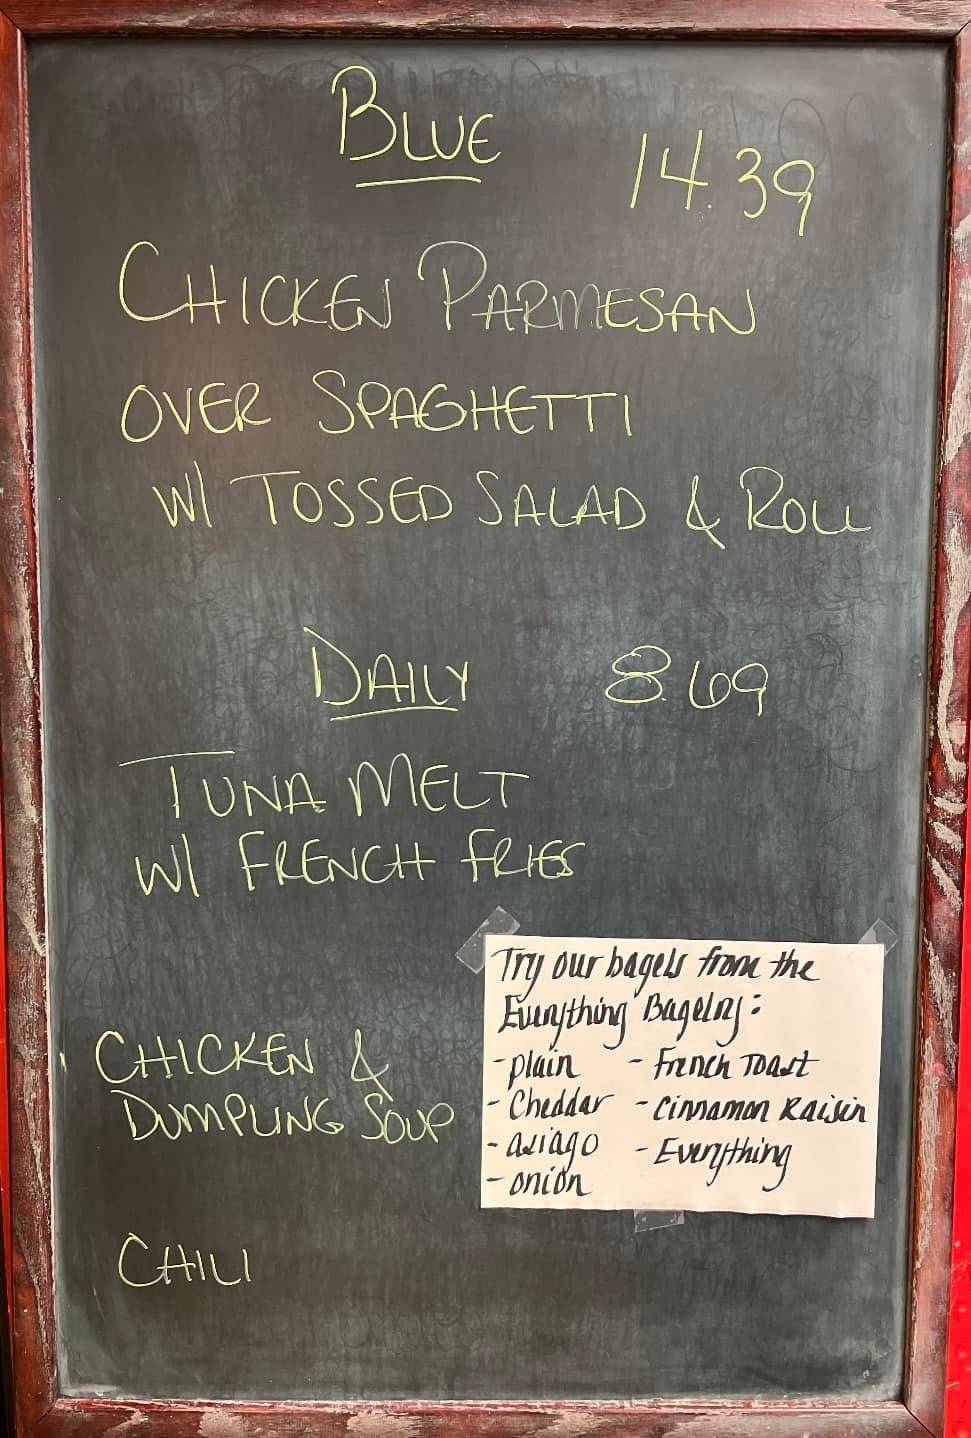 BLUE 14.39
CHICKEN PARMESAN
OVER SPAGHETTI
W/ TOSSED SALAD & ROLL
DAILY 8.69
TUNA MELT
W/ FRENCH FRIES
CHICKEN &
DUMPLING SOUP
CHILI
Try our bagels from the
Everything Bagelry:
- plain
- Cheddar
- asiago
- onion
- French Toast
- Cinnamon Raisin
- Everything